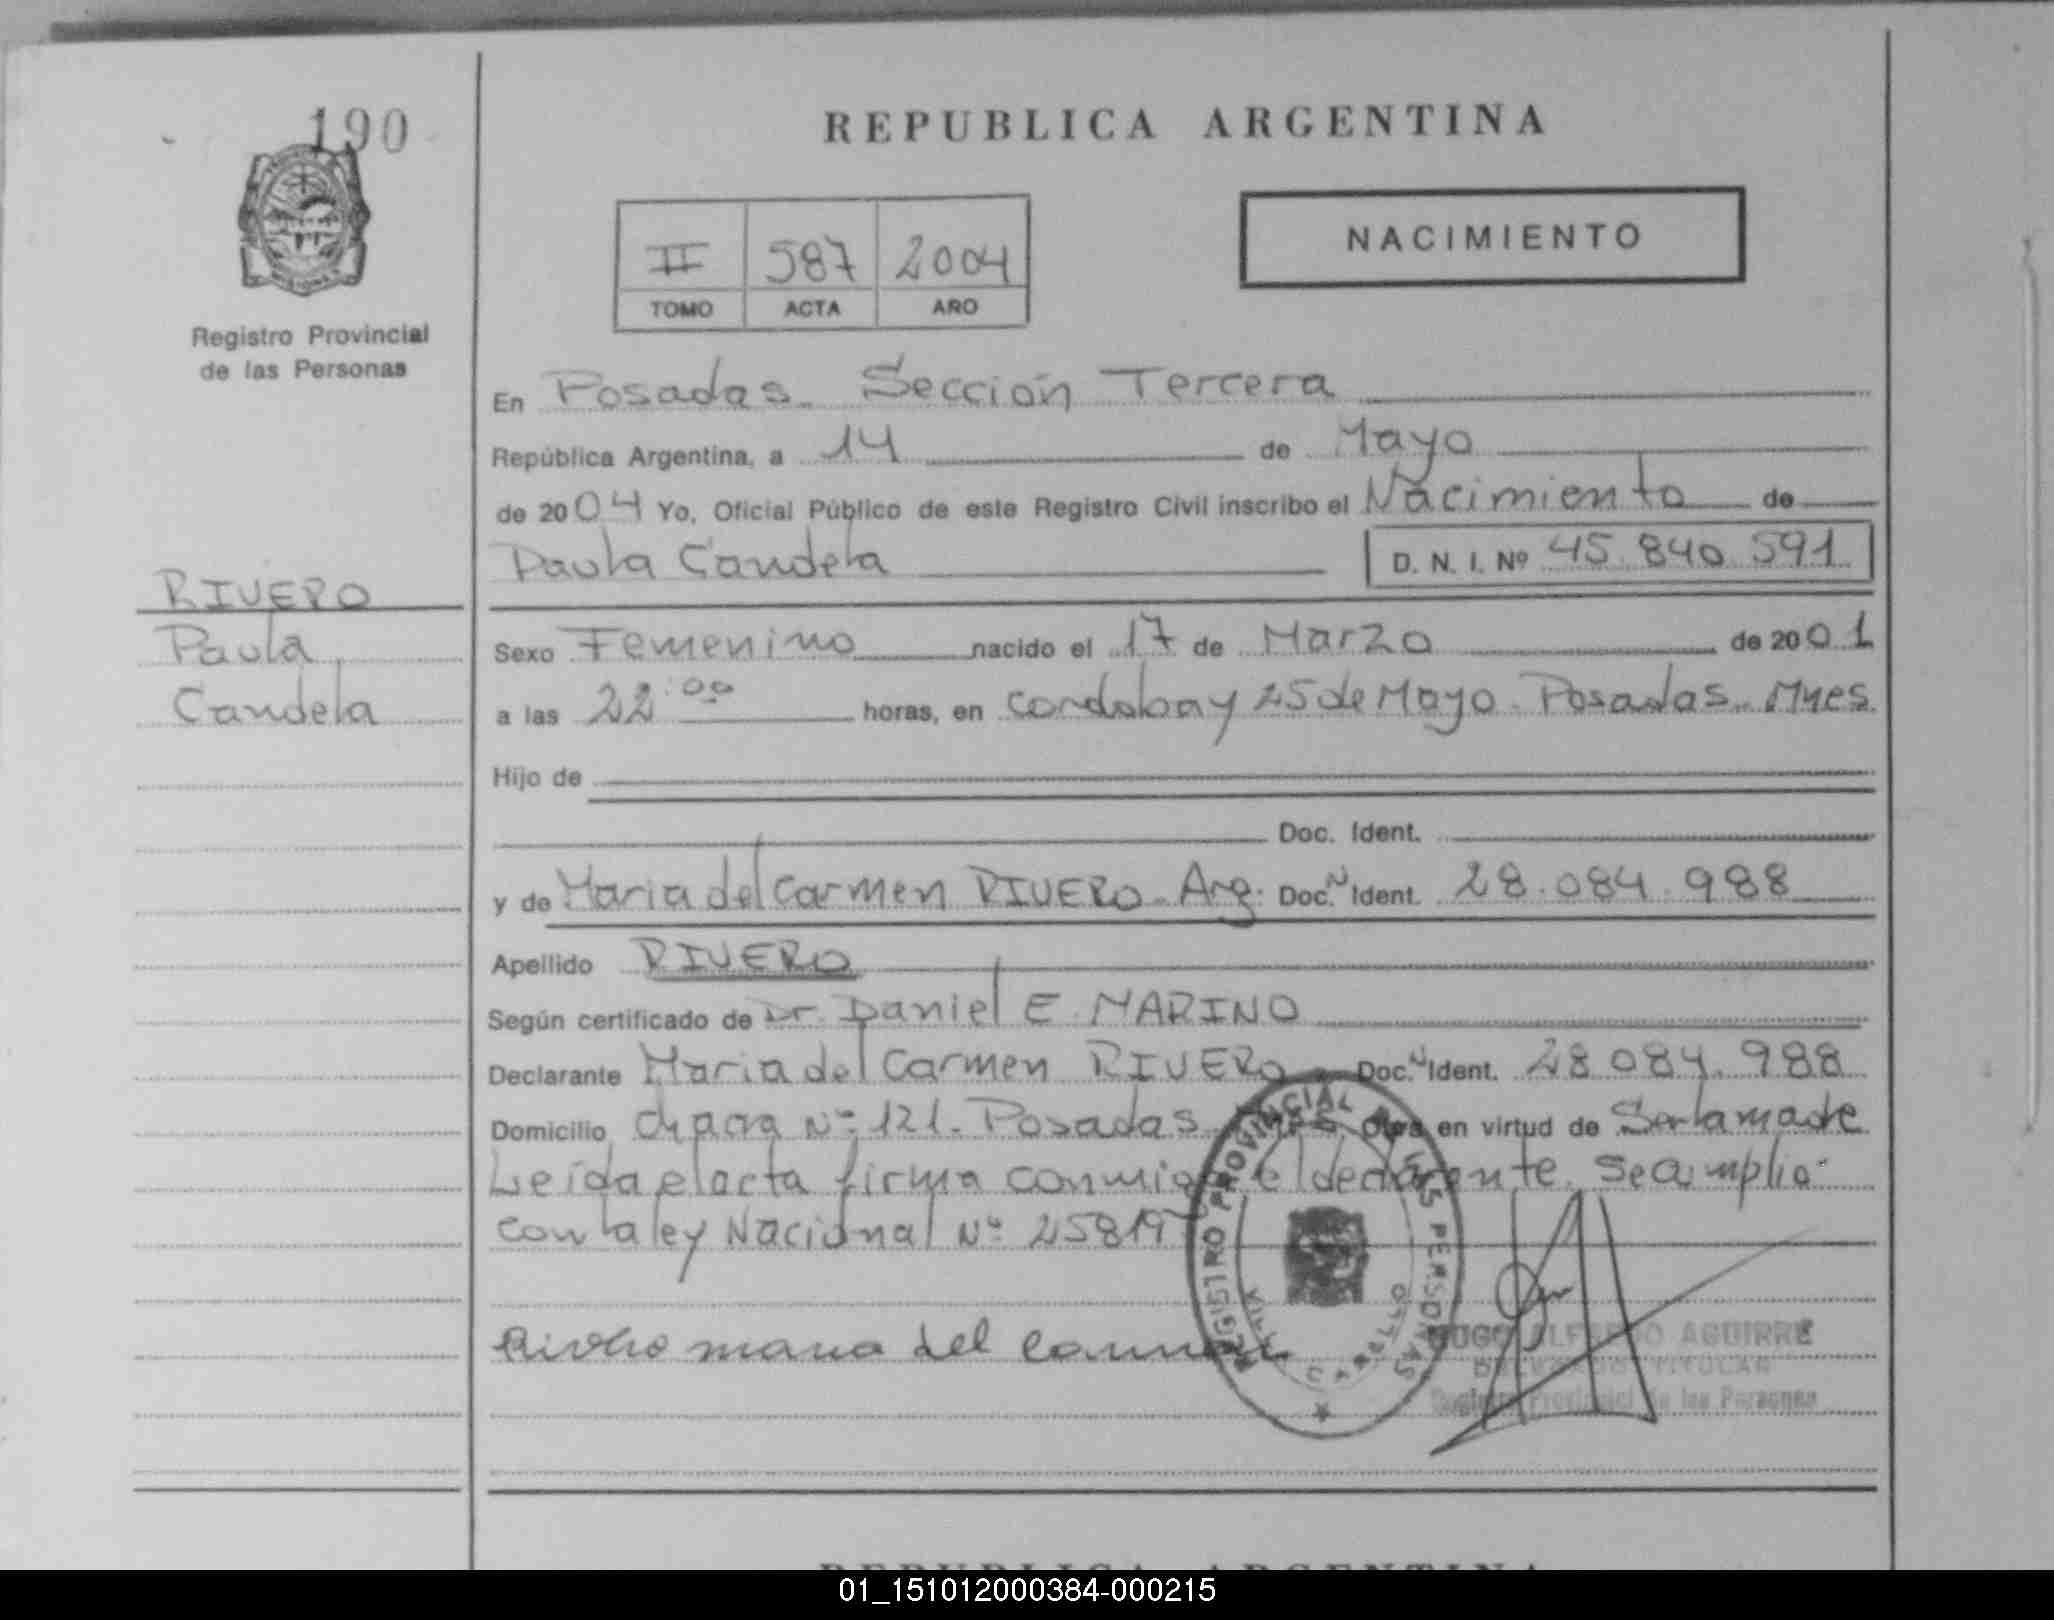 190
REPUBLICA ARGENTINA
NACIMIENTO
II 587 2004
TOMO ACTA AÑO
Registro Provincial
de las Personas
En Posadas - Sección Tercera
República Argentina, a 14 de Mayo
de 2004 Yo, Oficial Público de este Registro Civil inscribo el Nacimiento de
Paula Candela D. N. I. Nº 45.840.591
RIVERO
Paula
Candela
Sexo Femenino nacido el 17 de Marzo de 2001
a las 22:00 horas, en Cordoba y 25 de Mayo - Posadas - Mnes
Hijo de
Doc. Ident.
y de Maria del Carmen RIVERO - Arg. Doc. N Ident. 28.084.988
Apellido RIVERO
Según certificado de Dr. Daniel E. MARINO
Declarante Maria del Carmen RIVERO Doc. N Ident. 28.084.988
Domicilio Chacra Nº 121 - Posadas en virtud de Ser la madre
Leída el acta firma conmigo el declarante. Se cumplio
con la ley Nacional Nº 25819
Rivero maria del carmen
REGISTRO PROVINCIAL DE LAS PERSONAS
HUGO ALFREDO AGUIRRE
DELEGADO TITULAR
Registro Provincial de las Personas
REPUBLICA ARGENTINA
01_151012000384-000215